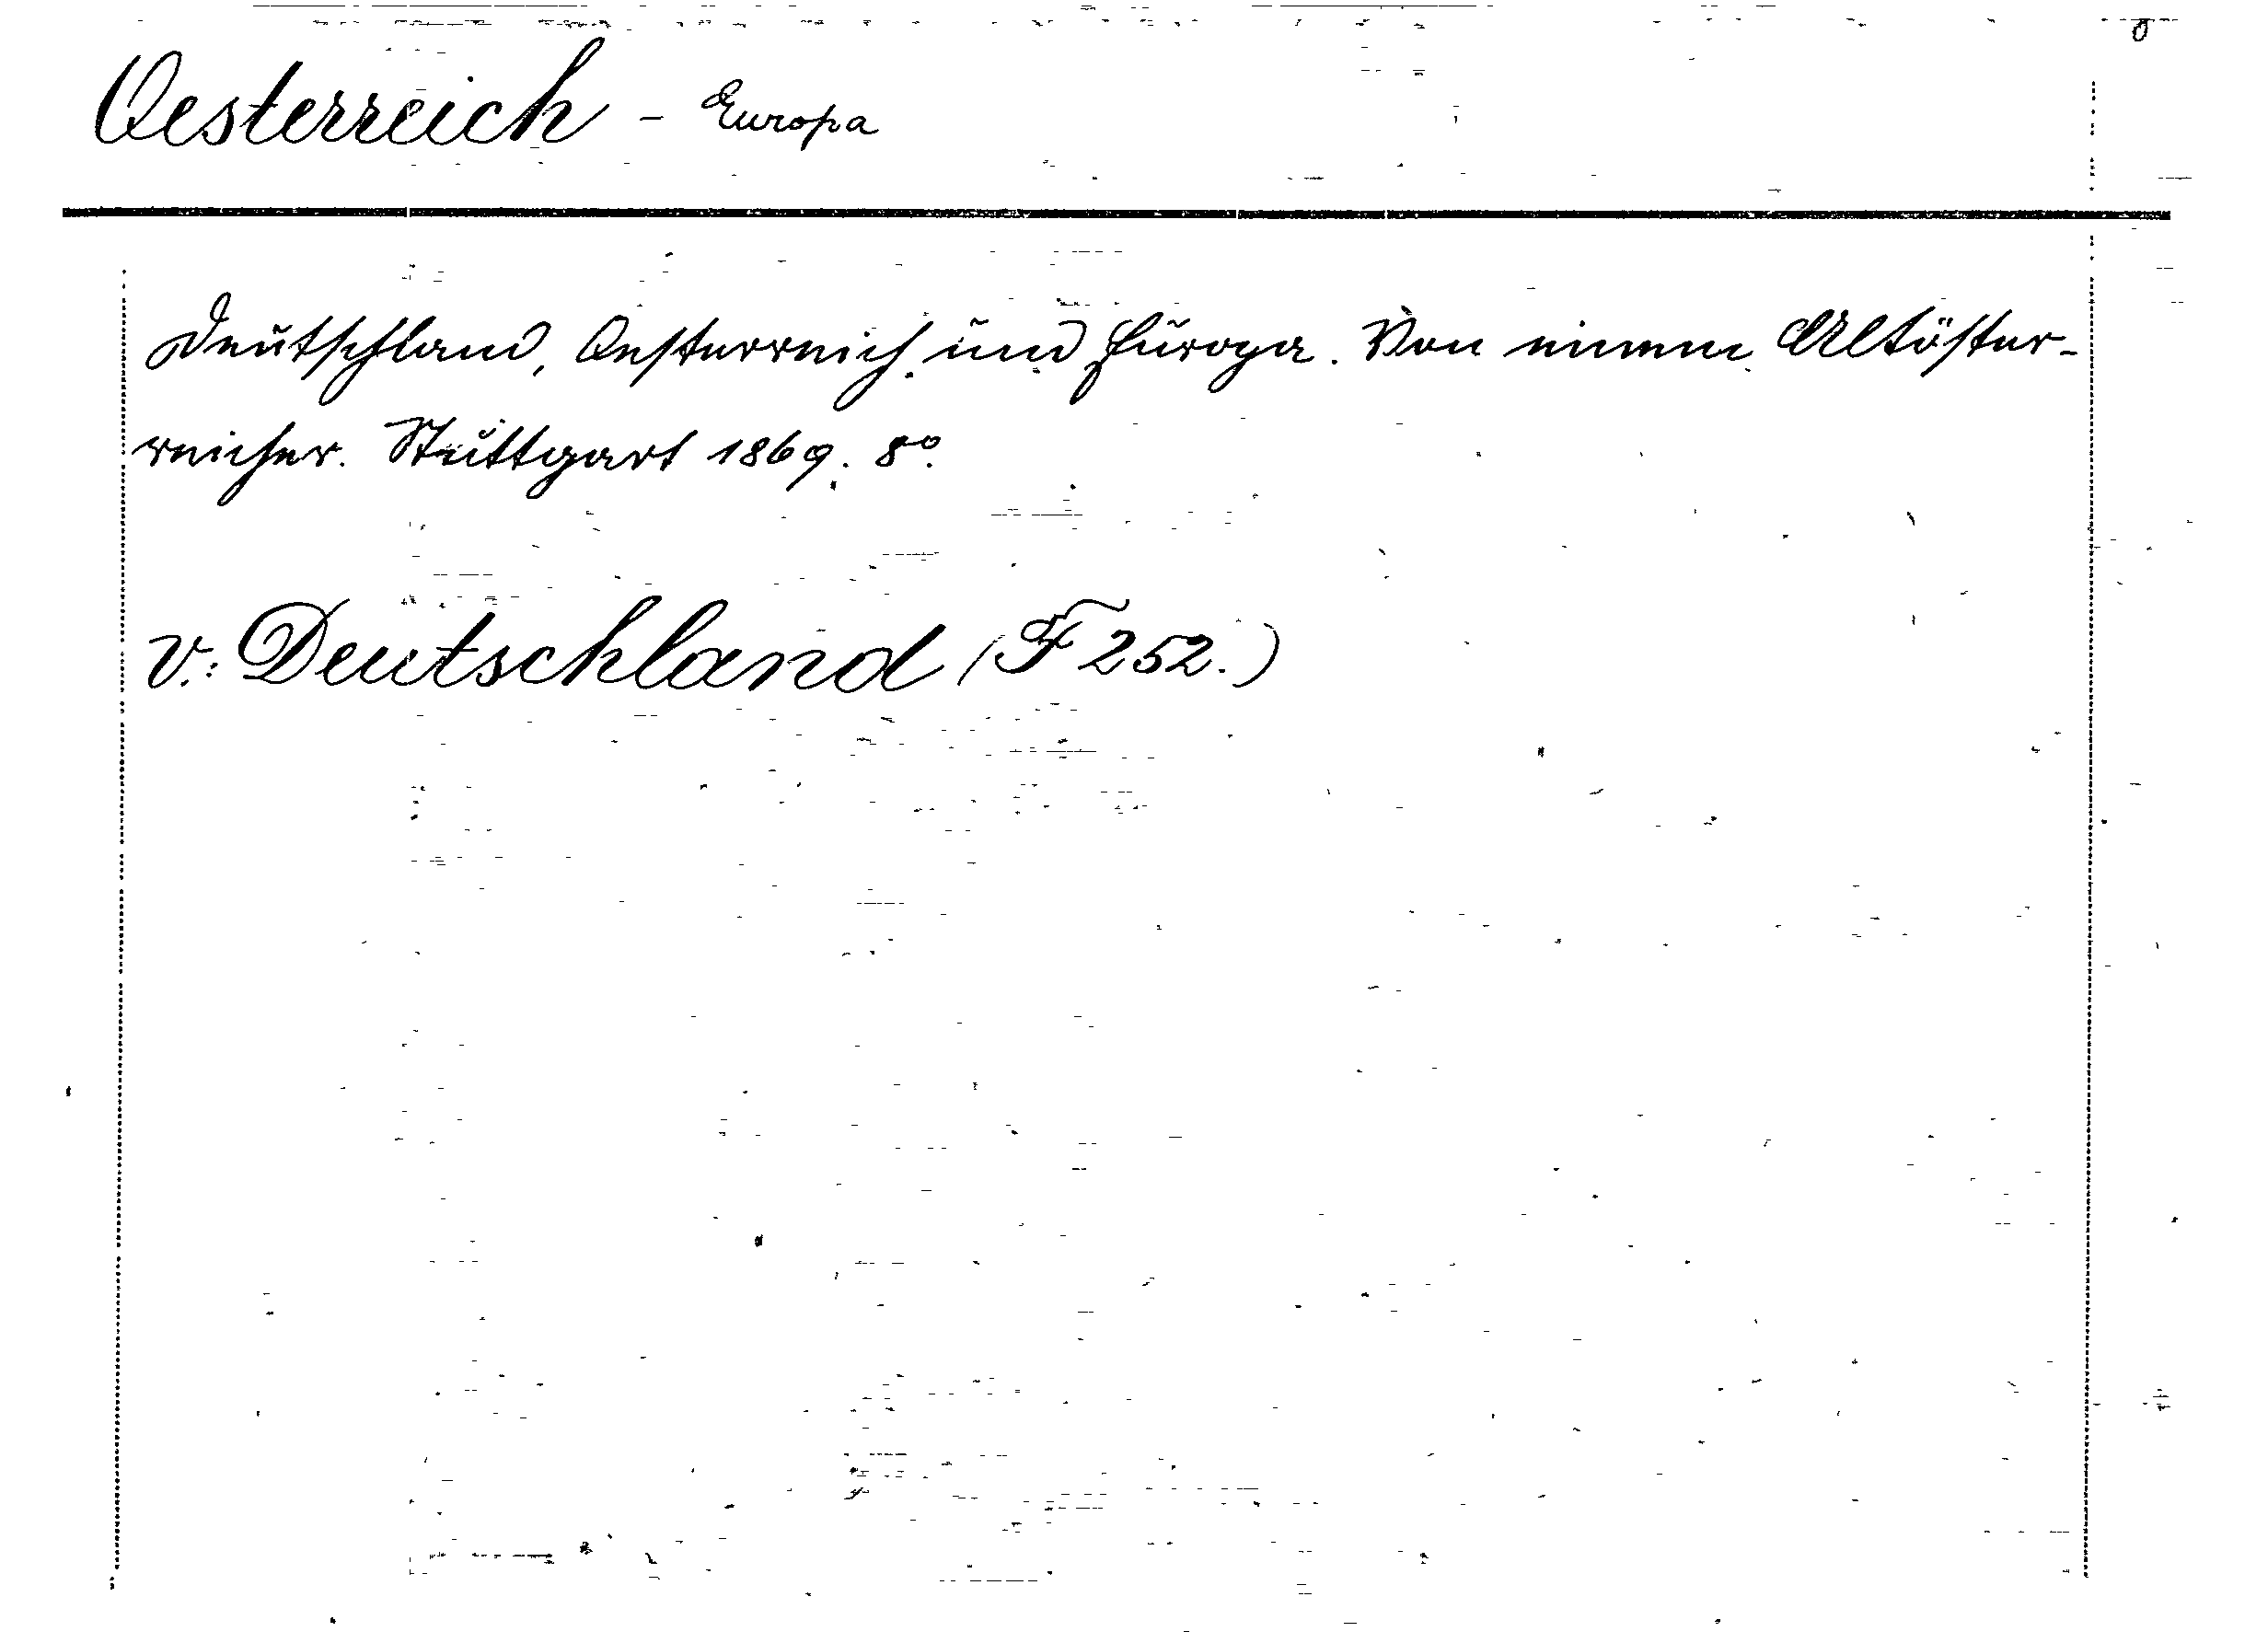 Oesterreich - Europa
Deutschland, Oesterreich und Europa. Von einem Altöster-
reicher. Stuttgart 1869. 8°.
v.: Deutschland (F 252.)